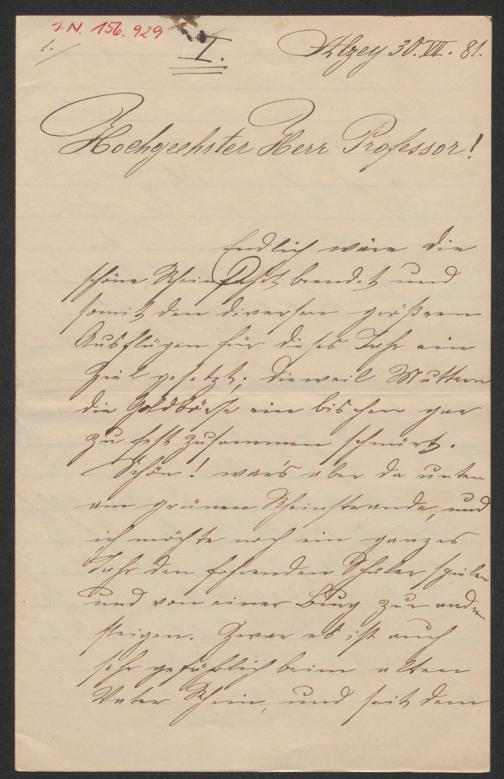 I. N. 156.929
1.
I.
Alzey 30. VII. 81.
Hochgeehrter Herr Professor!
Endlich wäre die
schöne Rheinfahrt beendet und
somit den diversen größeren
Ausflügen für dieses Jahr ein
Ziel gesetzt; dieweil Muttern
die Geldbörse ein bischen gar
zu fest zusammen schnürt.
Schön! war's aber da unten
am grünen Rheinstrande, und
ich möchte noch ein ganzes
Jahr den fahrenden Schüler spielen
und von einer Burg zur andern
steigen. Zwar es ist auch
sehr gefährlich beim alten
Vater Rhein, und seit dem